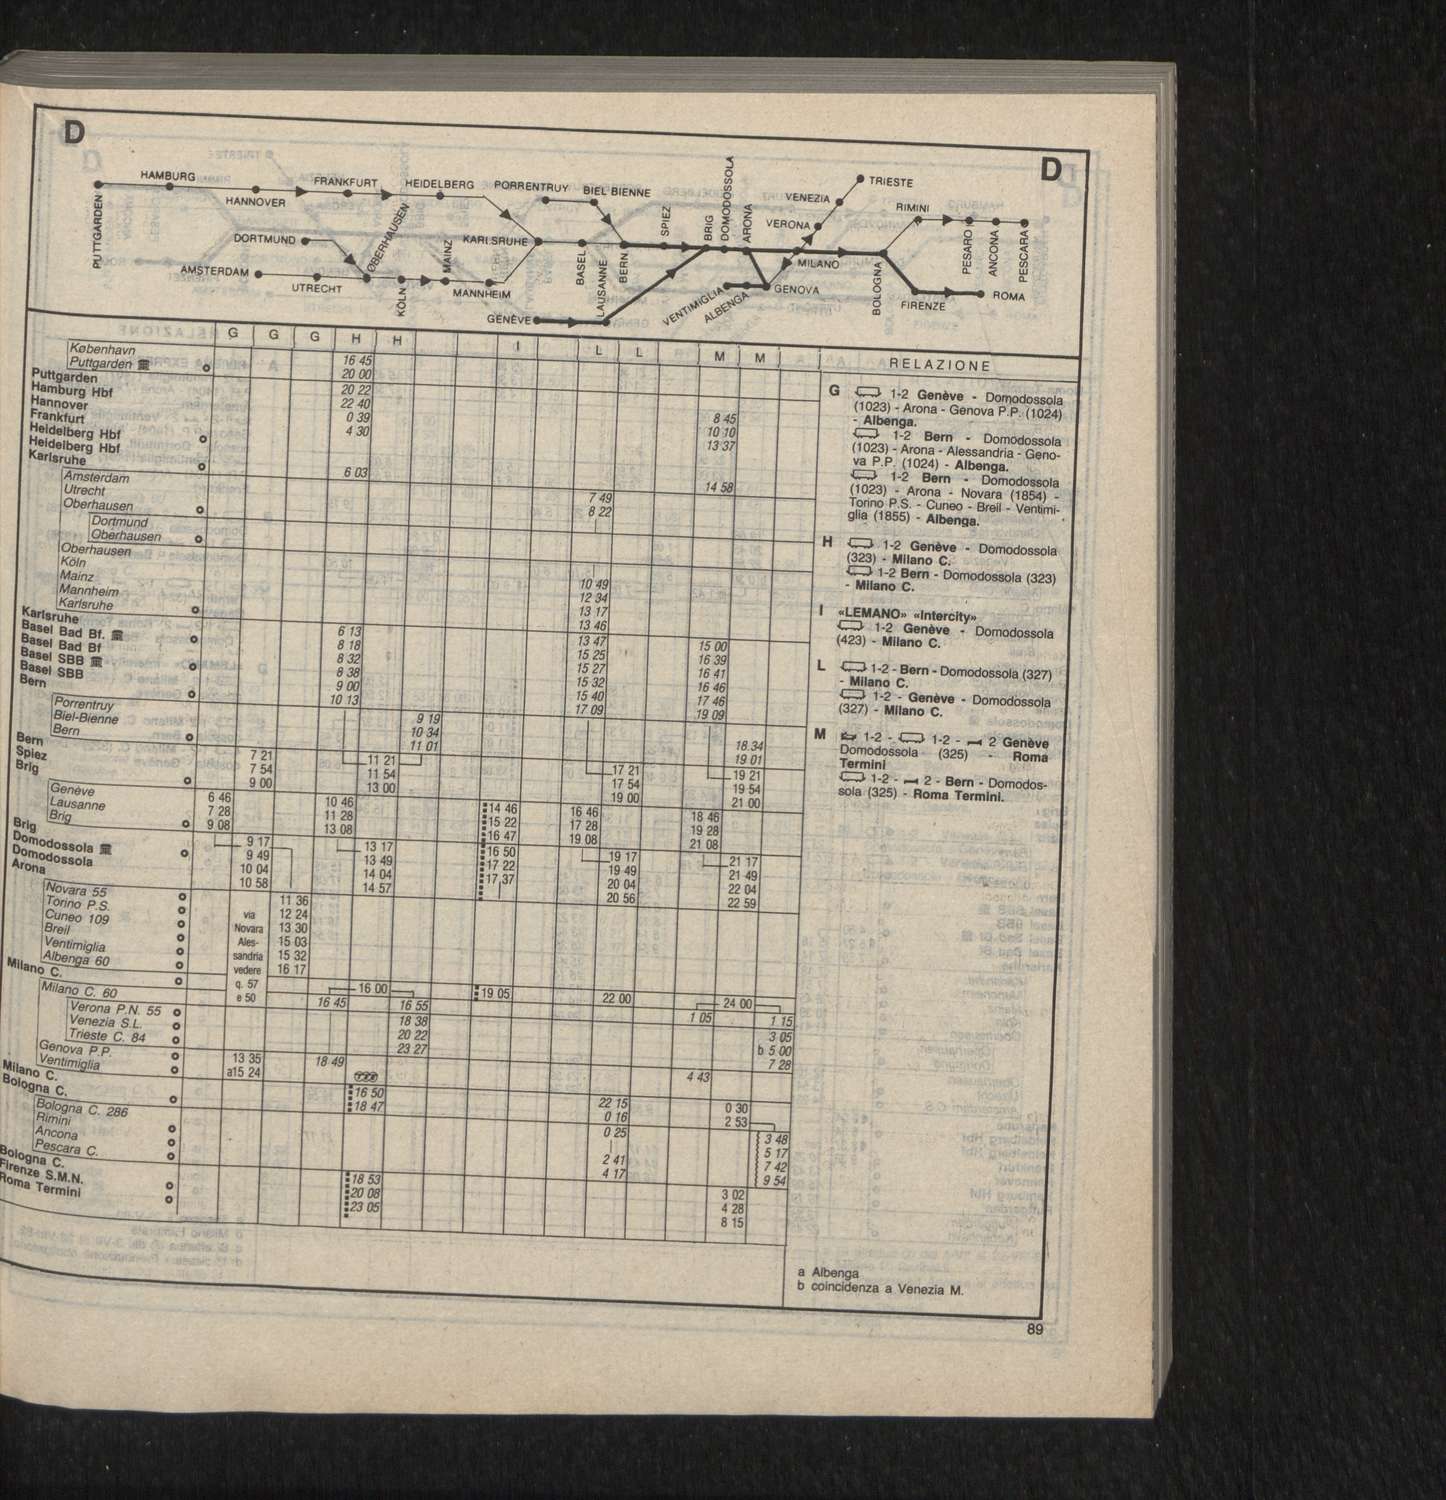 D D
PUTTGARDEN HAMBURG HANNOVER FRANKFURT HEIDELBERG PORRENTRUY BIEL BIENNE
DORTMUND OBERHAUSEN MAINZ KARLSRUHE BASEL LAUSANNE BERN SPIEZ BRIG DOMODOSSOLA ARONA
AMSTERDAM UTRECHT KÖLN MANNHEIM GENÈVE
VENTIMIGLIA ALBENGA GENOVA MILANO VERONA VENEZIA TRIESTE
BOLOGNA RIMINI PESARO ANCONA PESCARA FIRENZE ROMA
G G G H H I L L M M RELAZIONE
København 16 45
Puttgarden 20 00
Puttgarden 20 22
Hamburg Hbf 22 40
Hannover 0 39 8 45
Frankfurt 4 30 10 10
Heidelberg Hbf 13 37
Heidelberg Hbf
Karlsruhe 6 03 14 58
Amsterdam 7 49
Utrecht 8 22
Oberhausen
Dortmund
Oberhausen
Oberhausen 10 49
Köln 12 34
Mainz 13 17
Mannheim 13 46
Karlsruhe
Karlsruhe 6 13 13 47 15 00
Basel Bad Bf. 8 18 15 25 16 39
Basel Bad Bf 8 32 15 27 16 41
Basel SBB 8 38 15 32 16 46
Basel SBB 9 00 15 40 17 46
Bern 10 13 17 09 19 09
Porrentruy 9 19
Biel-Bienne 10 34 18 34
Bern 11 01 19 01
Bern 7 21 11 21 17 21 19 21
Spiez 7 54 11 54 17 54 19 54
Brig 9 00 13 00 19 00 21 00
Genève 6 46 10 46 14 46 16 46 18 46
Lausanne 7 28 11 28 15 22 17 28 19 28
Brig 9 08 13 08 16 47 19 08 21 08
Brig 9 17 13 17 16 50 19 17 21 17
Domodossola 9 49 13 49 17 22 19 49 21 49
Domodossola 10 04 14 04 17 37 20 04 22 04
Arona 10 58 14 57 20 56 22 59
Novara 55 11 36
Torino P.S. via 12 24
Cuneo 109 Novara 13 30
Breil Ales- 15 03
Ventimiglia sandria 15 32
Albenga 60 vedere 16 17
Milano C. q. 57 16 00 19 05 22 00 24 00
Milano C. 60 e 50 16 45 16 55 1 05 1 15
Verona P.N. 55 18 38 3 05
Venezia S.L. 20 22 b 5 00
Trieste C. 84 23 27 7 28
Genova P.P. 13 35 18 49 4 43
Ventimiglia a15 24
Milano C. 16 50 22 15 0 30
Bologna C. 18 47 0 16 2 53
Bologna C. 286 0 25 3 48
Rimini 5 17
Ancona 2 41 7 42
Pescara C. 4 17 9 54
Bologna C. 18 53 3 02
Firenze S.M.N. 20 08 4 28
Roma Termini 23 05 8 15
G 1-2 Genève - Domodossola
(1023) - Arona - Genova P.P. (1024)
- Albenga.
1-2 Bern - Domodossola
(1023) - Arona - Alessandria - Geno-
va P.P. (1024) - Albenga.
1-2 Bern - Domodossola
(1023) - Arona - Novara (1854) -
Torino P.S. - Cuneo - Breil - Ventimi-
glia (1855) - Albenga.
H 1-2 Genève - Domodossola
(323) - Milano C.
1-2 Bern - Domodossola (323)
- Milano C.
I «LEMANO» «Intercity»
1-2 Genève - Domodossola
(423) - Milano C.
L 1-2 - Bern - Domodossola (327)
- Milano C.
1-2 - Genève - Domodossola
(327) - Milano C.
M 1-2 - 1-2 - 2 Genève
Domodossola (325) - Roma
Termini
1-2 - 2 - Bern - Domodos-
sola (325) - Roma Termini.
a Albenga
b coincidenza a Venezia M.
89